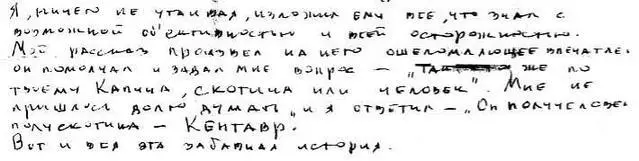 Я, ничего не утаивая, изложил ему все, что знал с
возможной объективностью и всей осторожностью.
Мой рассказ произвел на него ошеломляющее впечатле-
он помолчал и задал мне вопрос – „ же по
твоему Капица, скотина или человек". Мне не
пришлось долго думать и я ответил – „Он получелове
полускотина – Кентавр.
Вот и вся эта забавная история.